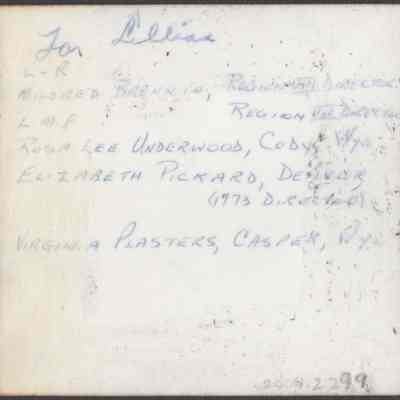 For Lillian
L-R
Mildred Brennis, Region VIII Director
L M P Region VIII Director
Rosa Lee Underwood, Cody, Wyo
Elizabeth Pickard, Denver,
(1973 Director)
Virginia Plasters, Casper, Wyo
99